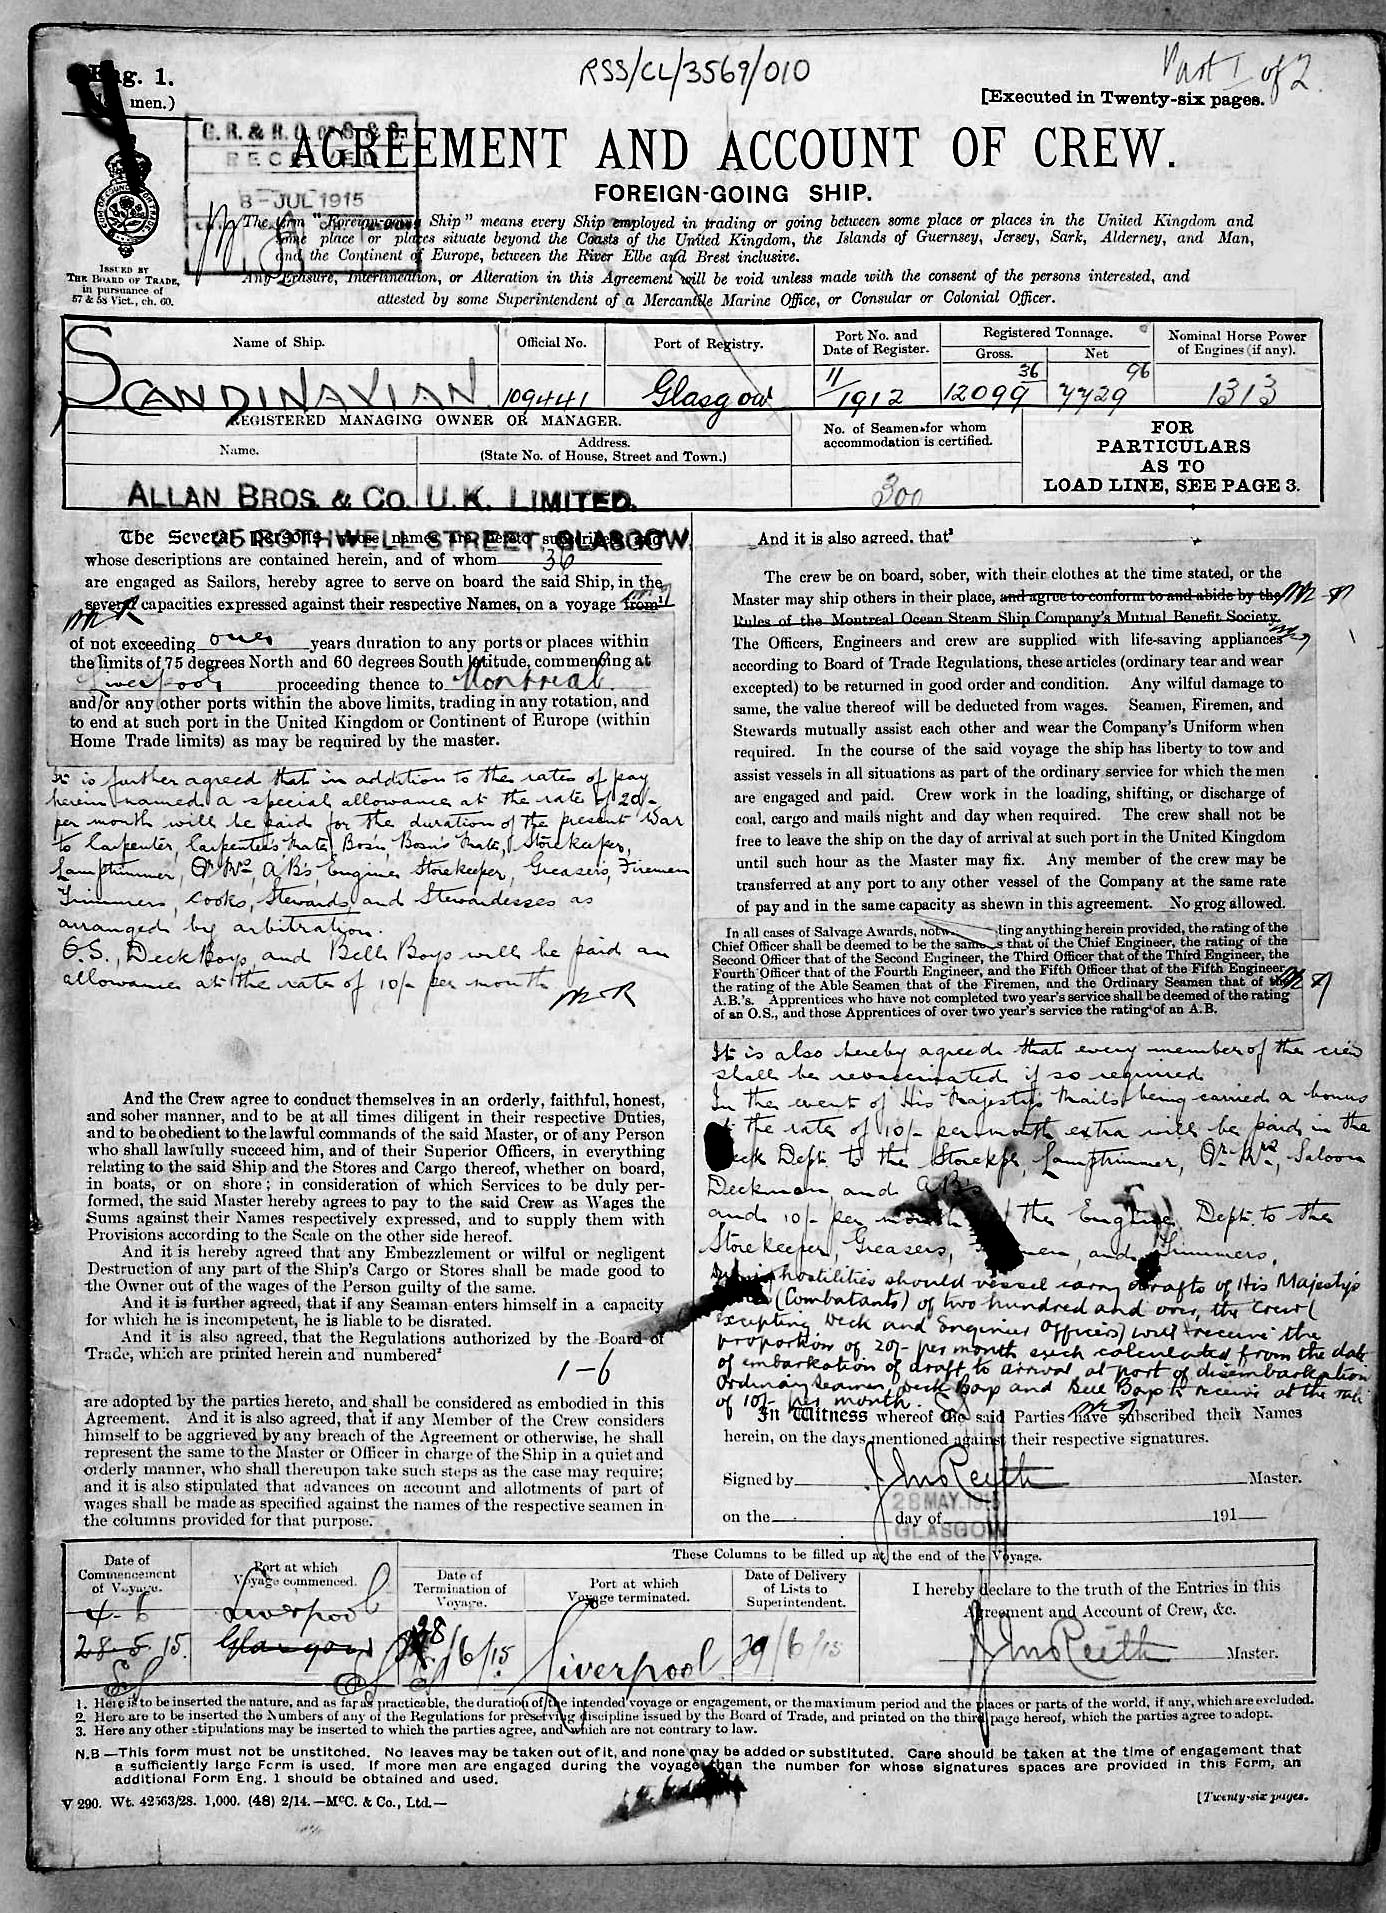 RSS/CL/3569/010
Part I of 2.
Eng. 1.
men.)
[Executed in Twenty-six pages.
C.R. & R.G. of S. & S.
RECEIVED
8-JUL 1915
AGREEMENT AND ACCOUNT OF CREW.
FOREIGN-GOING SHIP.
The term "Foreign-going Ship" means every Ship employed in trading or going between some place or places in the United Kingdom and
some place or places situate beyond the Coasts of the United Kingdom, the Islands of Guernsey, Jersey, Sark, Alderney, and Man,
and the Continent of Europe, between the River Elbe and Brest inclusive.
Any Erasure, Interlineation, or Alteration in this Agreement will be void unless made with the consent of the persons interested, and
attested by some Superintendent of a Mercantile Marine Office, or Consular or Colonial Officer.
ISSUED BY
THE BOARD OF TRADE,
in pursuance of
57 & 58 Vict., ch. 60.
Name of Ship.
Official No.
Port of Registry.
Port No. and
Date of Register.
Registered Tonnage.
Gross.
Net
Nominal Horse Power
of Engines (if any).
SCANDINAVIAN
109441
Glasgow
11/1912
12099 36
7729 96
1313
REGISTERED MANAGING OWNER OR MANAGER.
Name.
Address.
(State No. of House, Street and Town.)
No. of Seamen for whom
accommodation is certified.
300
FOR
PARTICULARS
AS TO
LOAD LINE, SEE PAGE 3.
ALLAN BROS. & CO. U.K. LIMITED.
BOTHWELL STREET, GLASGOW.
The Several Persons whose names are hereto subscribed, and
whose descriptions are contained herein, and of whom 36
are engaged as Sailors, hereby agree to serve on board the said Ship, in the
several capacities expressed against their respective Names, on a voyage from¹
of not exceeding one years duration to any ports or places within
the limits of 75 degrees North and 60 degrees South latitude, commencing at
Liverpool proceeding thence to Montreal.
and/or any other ports within the above limits, trading in any rotation, and
to end at such port in the United Kingdom or Continent of Europe (within
Home Trade limits) as may be required by the master.
It is further agreed that in addition to the rates of pay
herein named a special allowance at the rate of 20/-
per month will be paid for the duration of the present War
to Carpenter, Carpenters Mate, Bosn, Bosn's Mate, Storekeeper,
Lamptrimmer, Qr Mrs, A B's, Engine Storekeeper, Greasers, Firemen
Trimmers, Cooks, Stewards and Stewardesses as
arranged by arbitration.
O.S., Deck Boys, and Bell Boys will be paid an
allowance at the rate of 10/- per month
And the Crew agree to conduct themselves in an orderly, faithful, honest,
and sober manner, and to be at all times diligent in their respective Duties,
and to be obedient to the lawful commands of the said Master, or of any Person
who shall lawfully succeed him, and of their Superior Officers, in everything
relating to the said Ship and the Stores and Cargo thereof, whether on board,
in boats, or on shore; in consideration of which Services to be duly per-
formed, the said Master hereby agrees to pay to the said Crew as Wages the
Sums against their Names respectively expressed, and to supply them with
Provisions according to the Scale on the other side hereof.
And it is hereby agreed that any Embezzlement or wilful or negligent
Destruction of any part of the Ship's Cargo or Stores shall be made good to
the Owner out of the wages of the Person guilty of the same.
And it is further agreed, that if any Seaman enters himself in a capacity
for which he is incompetent, he is liable to be disrated.
And it is also agreed, that the Regulations authorized by the Board of
Trade, which are printed herein and numbered²
1-6
are adopted by the parties hereto, and shall be considered as embodied in this
Agreement. And it is also agreed, that if any Member of the Crew considers
himself to be aggrieved by any breach of the Agreement or otherwise, he shall
represent the same to the Master or Officer in charge of the Ship in a quiet and
orderly manner, who shall thereupon take such steps as the case may require;
and it is also stipulated that advances on account and allotments of part of
wages shall be made as specified against the names of the respective seamen in
the columns provided for that purpose.
And it is also agreed, that³
The crew be on board, sober, with their clothes at the time stated, or the
Master may ship others in their place, and agree to conform to and abide by the
Rules of the Montreal Ocean Steam Ship Company's Mutual Benefit Society.
The Officers, Engineers and crew are supplied with life-saving appliances
according to Board of Trade Regulations, these articles (ordinary tear and wear
excepted) to be returned in good order and condition. Any wilful damage to
same, the value thereof will be deducted from wages. Seamen, Firemen, and
Stewards mutually assist each other and wear the Company's Uniform when
required. In the course of the said voyage the ship has liberty to tow and
assist vessels in all situations as part of the ordinary service for which the men
are engaged and paid. Crew work in the loading, shifting, or discharge of
coal, cargo and mails night and day when required. The crew shall not be
free to leave the ship on the day of arrival at such port in the United Kingdom
until such hour as the Master may fix. Any member of the crew may be
transferred at any port to any other vessel of the Company at the same rate
of pay and in the same capacity as shewn in this agreement. No grog allowed.
In all cases of Salvage Awards, notw ting anything herein provided, the rating of the
Chief Officer shall be deemed to be the same as that of the Chief Engineer, the rating of the
Second Officer that of the Second Engineer, the Third Officer that of the Third Engineer, the
Fourth Officer that of the Fourth Engineer, and the Fifth Officer that of the Fifth Engineer,
the rating of the Able Seamen that of the Firemen, and the Ordinary Seamen that of the
A.B.'s. Apprentices who have not completed two year's service shall be deemed of the rating
of an O.S., and those Apprentices of over two year's service the rating of an A.B.
It is also hereby agreed that every member of the crew
shall be revaccinated if so required
In the event of His Majestys Mails being carried a bonus
at the rate of 10/- per month extra will be paid in the
Deck Dept. to the Storekpr, Lamptrimmer, Qr Mrs, Saloon
Deckman and A B's
and 10/- per month the Engine Dept. to the
Storekeeper, Greasers, Firemen, and Trimmers.
hostilities should vessel carry drafts of His Majestys
(Combatants) of two hundred and over, the Crew (
excepting Deck and Engineer Officers) will receive the
proportion of 20/- per month each calculated from the date
of embarkation of draft to arrival at port of disembarkation
Ordinary Seamen, Deck Boys and Bell Boys to receive at the rate
of 10/- per month.
In Witness whereof the said Parties have subscribed their Names
herein, on the days mentioned against their respective signatures.
Signed by Jno Reith Master.
28 MAY. 1915
GLASGOW
on the day of 191
Date of
Commencement
of Voyage.
Port at which
Voyage commenced.
These Columns to be filled up at the end of the Voyage.
Date of
Termination of
Voyage.
Port at which
Voyage terminated.
Date of Delivery
of Lists to
Superintendent.
I hereby declare to the truth of the Entries in this
Agreement and Account of Crew, &c.
4-6
28-5-15.
Liverpool
Glasgow
28/6/15
Liverpool
29/6/15
Jno Reith Master.
1. Here is to be inserted the nature, and as far as practicable, the duration of the intended voyage or engagement, or the maximum period and the places or parts of the world, if any, which are excluded.
2. Here are to be inserted the Numbers of any of the Regulations for preserving discipline issued by the Board of Trade, and printed on the third page hereof, which the parties agree to adopt.
3. Here any other stipulations may be inserted to which the parties agree, and which are not contrary to law.
N.B—This form must not be unstitched. No leaves may be taken out of it, and none may be added or substituted. Care should be taken at the time of engagement that
a sufficiently large Form is used. If more men are engaged during the voyage than the number for whose signatures spaces are provided in this Form, an
additional Form Eng. 1 should be obtained and used.
V 290. Wt. 42563/28. 1,000. (48) 2/14.—McC. & Co., Ltd.—
[Twenty-six pages.